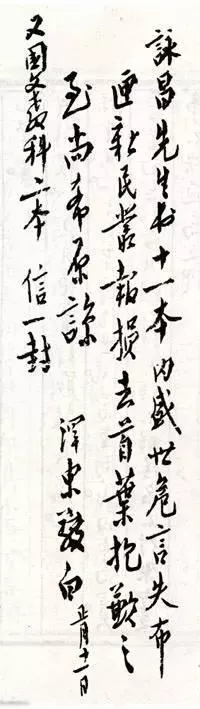 詠昌先生书十一本内盛世危言失布
匣新民叢報損去首葉抱歉之
至尚希原諒
澤東敬白 正月十一日
又国文教科二本 信一封